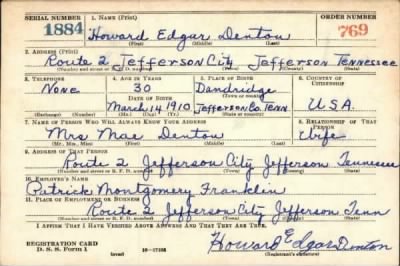 SERIAL NUMBER 1. NAME (Print) ORDER NUMBER
1884 Howard Edgar Denton 769
(First) (Middle) (Last)
2. ADDRESS (Print)
Route 2 Jefferson City Jefferson Tennessee
(Number and street or R. F. D. number) (Town) (County) (State)
3. TELEPHONE 4. AGE IN YEARS 5. PLACE OF BIRTH 6. COUNTRY OF CITIZENSHIP
None 30 Dandridge
DATE OF BIRTH (Town or county)
March 14 1910 Jefferson Co. Tenn U.S.A.
(Exchange) (Number) (Mo.) (Day) (Yr.) (State or country)
7. NAME OF PERSON WHO WILL ALWAYS KNOW YOUR ADDRESS 8. RELATIONSHIP OF THAT PERSON
Mrs Mae Denton Wife
(Mr., Mrs., Miss) (First) (Middle) (Last)
9. ADDRESS OF THAT PERSON
Route 2 Jefferson City Jefferson Tennessee
(Number and street or R. F. D. number) (Town) (County) (State)
10. EMPLOYER'S NAME
Patrick Montgomery Franklin
11. PLACE OF EMPLOYMENT OR BUSINESS
Route 2 Jefferson City Jefferson Tenn
(Number and street or R. F. D. number) (Town) (County) (State)
I AFFIRM THAT I HAVE VERIFIED ABOVE ANSWERS AND THAT THEY ARE TRUE.
REGISTRATION CARD Howard Edgar Denton
D. S. S. Form 1 16—17105 (Registrant's signature)
(over)